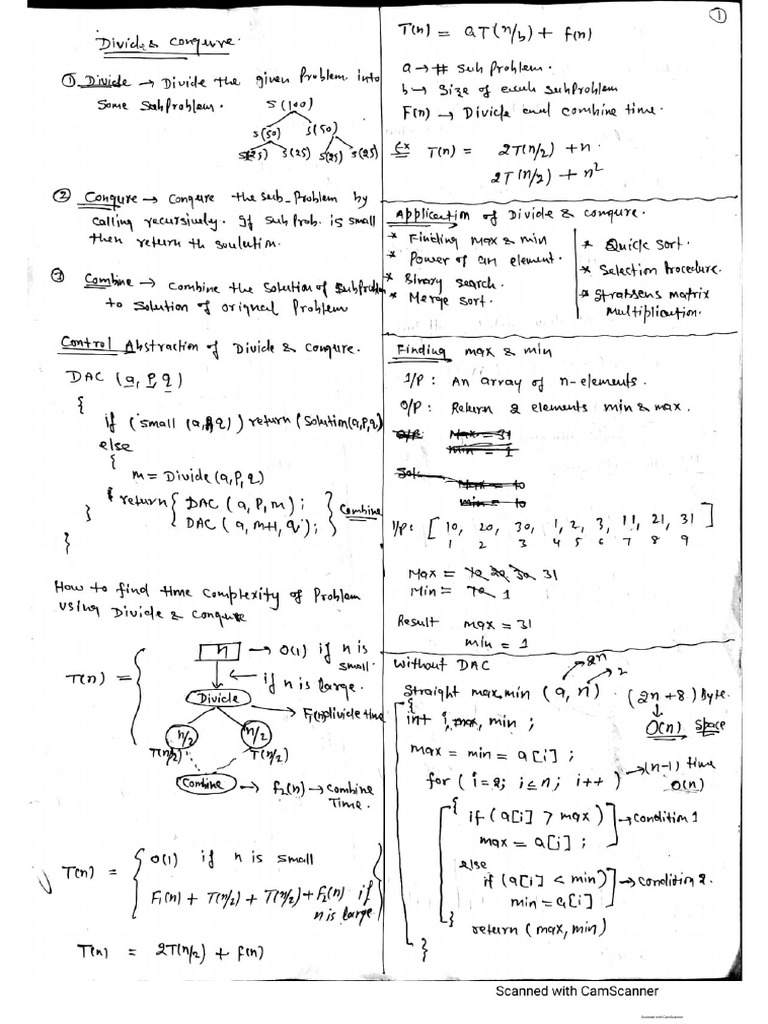 Divide & Conqure.
① Divide → Divide the given Problem into
Some SubProblem.
S(100)
S(50) S(50)
S(25) S(25) S(25) S(25)
② Conqure → Conqure the sub-Problem by
calling recursively. If sub Prob. is small
then return th soulution.
③ Combine → Combine the solution of SubProblem
to solution of orignal Problem
Control Abstraction of Divide & Conqure.
DAC (a, P, q)
{
if (small (a,P,q)) return (Solution(a,P,q)
else
{
m = Divide(a,P,q)
return { DAC (a, P, m);
DAC (a, m+1, q); } Combine
}
}
How to find time complexity of Problem
using Divide & Conqure
T(n) = {
n → O(1) if n is
small.
if n is large.
Divide
F₁(n) divide time
n/2 n/2
T(n/2) T(n/2)
Combine → f₂(n) → combine
Time.
T(n) = { O(1) if n is small
F₁(n) + T(n/2) + T(n/2) + F₂(n) if
n is large }
T(n) = 2T(n/2) + f(n)
①
T(n) = aT(n/b) + F(n)
a → # sub problem.
b → Size of each subproblem
F(n) → Divide and combine time.
Ex T(n) = 2T(n/2) + n.
2T(n/2) + n²
Application of Divide & conqure.
* Finding max & min
* Power of an element.
* Binary search.
* Merge sort.
* Quick sort.
* Selection Procedure.
* Strassens matrix
multiplication.
Finding max & min
I/P: An array of n-elements.
O/P: Return 2 elements min & max.
O/P: Max = 31
min = 1
Sol.
Max = 10
min = 10
I/P: [10, 20, 30, 1, 2, 3, 11, 21, 31]
1 2 3 4 5 6 7 8 9
Max = 10 20 30 31
Min = 10 1
Result max = 31
min = 1
Without DAC
2n
2
Straight max min (a, n). (2n+8) Byte.
{
O(n) space
int i, max, min ;
max = min = a[i] ;
for (i=2; i≤n; i++) → (n-1) time
O(n)
{ if (a[i] > max) → condition 1
max = a[i] ;
else
if (a[i] < min) → condition 2.
min = a[i]
}
return (max, min)
}
Scanned with CamScanner
Scanned with CamScanner